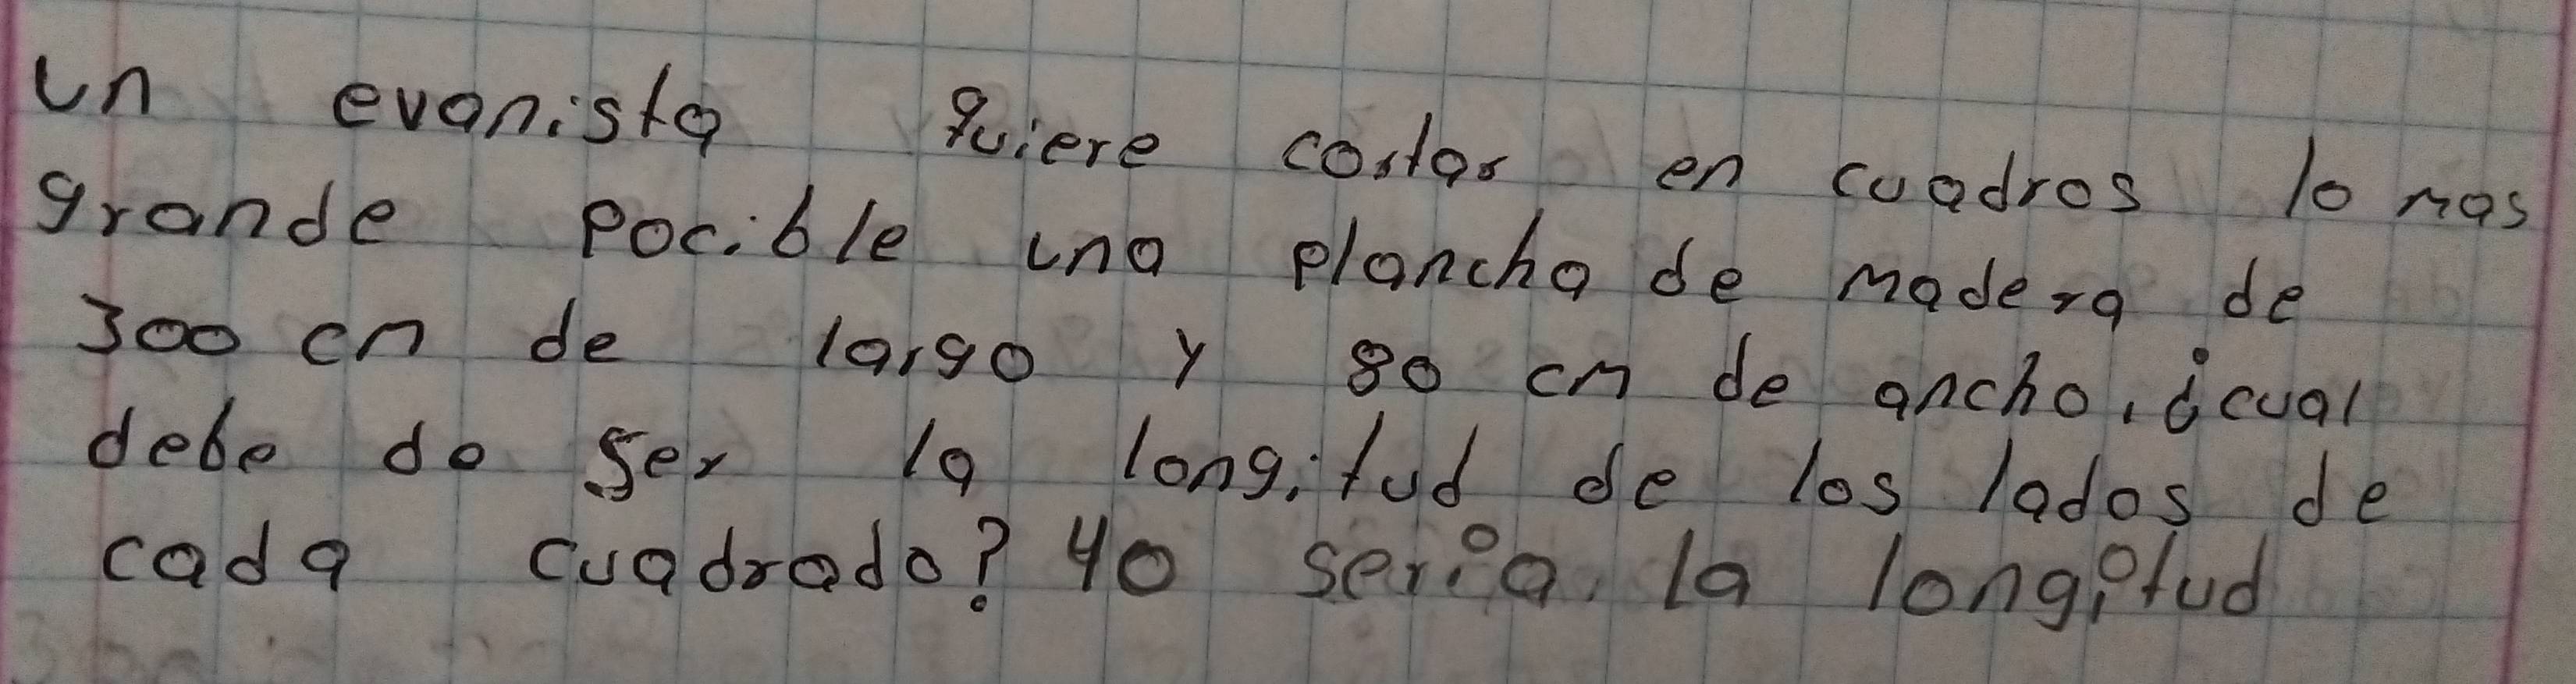 un evanista quiere cortar en cuadros lo mas
grande pocible una plancha de madera de
300 cm de largo y 80 cm de ancho, ¿cual
debe de ser la longitud de los lados de
cada cuadrado? 40 seria la longitud